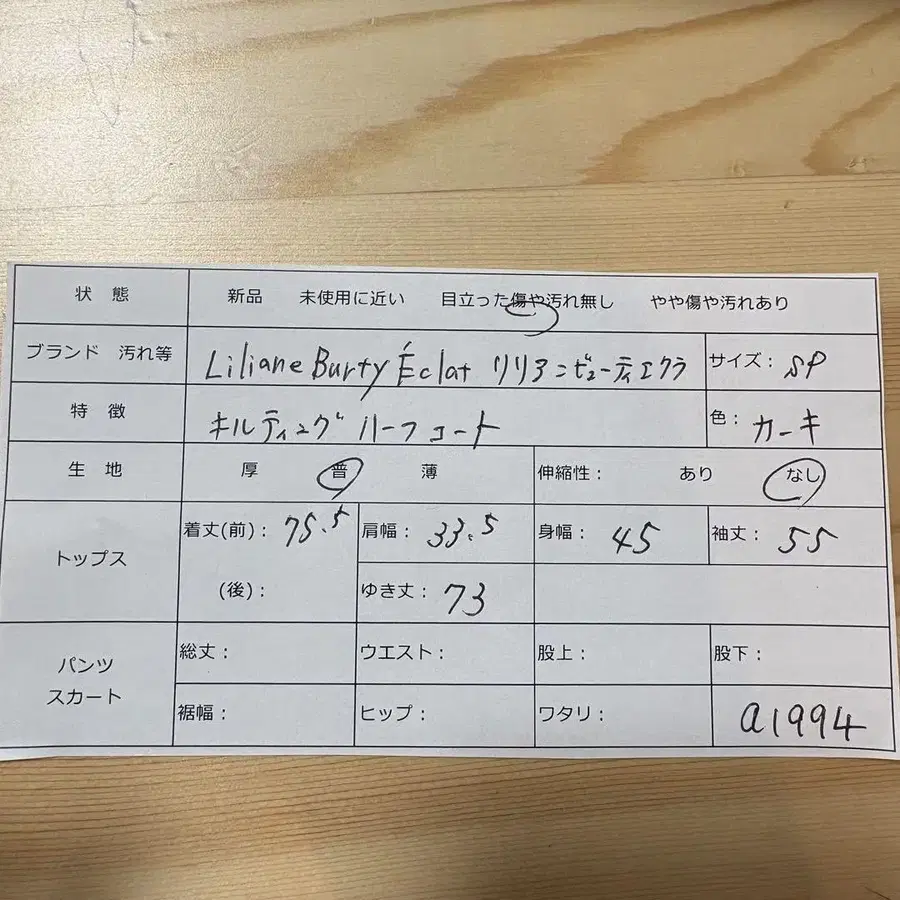 状 態 新品 未使用に近い 目立った傷や汚れ無し やや傷や汚れあり
ブランド 汚れ等 Liliane Burty Éclat リリアンビューティエクラ サイズ: SP
特 徴 キルティング ハーフコート 色: カーキ
生 地 厚 普 薄 伸縮性: あり なし
トップス 着丈(前): 75.5 肩幅: 33.5 身幅: 45 袖丈: 55
(後): ゆき丈: 73
パンツ 総丈: ウエスト: 股上: 股下:
スカート 裾幅: ヒップ: ワタリ: a1994